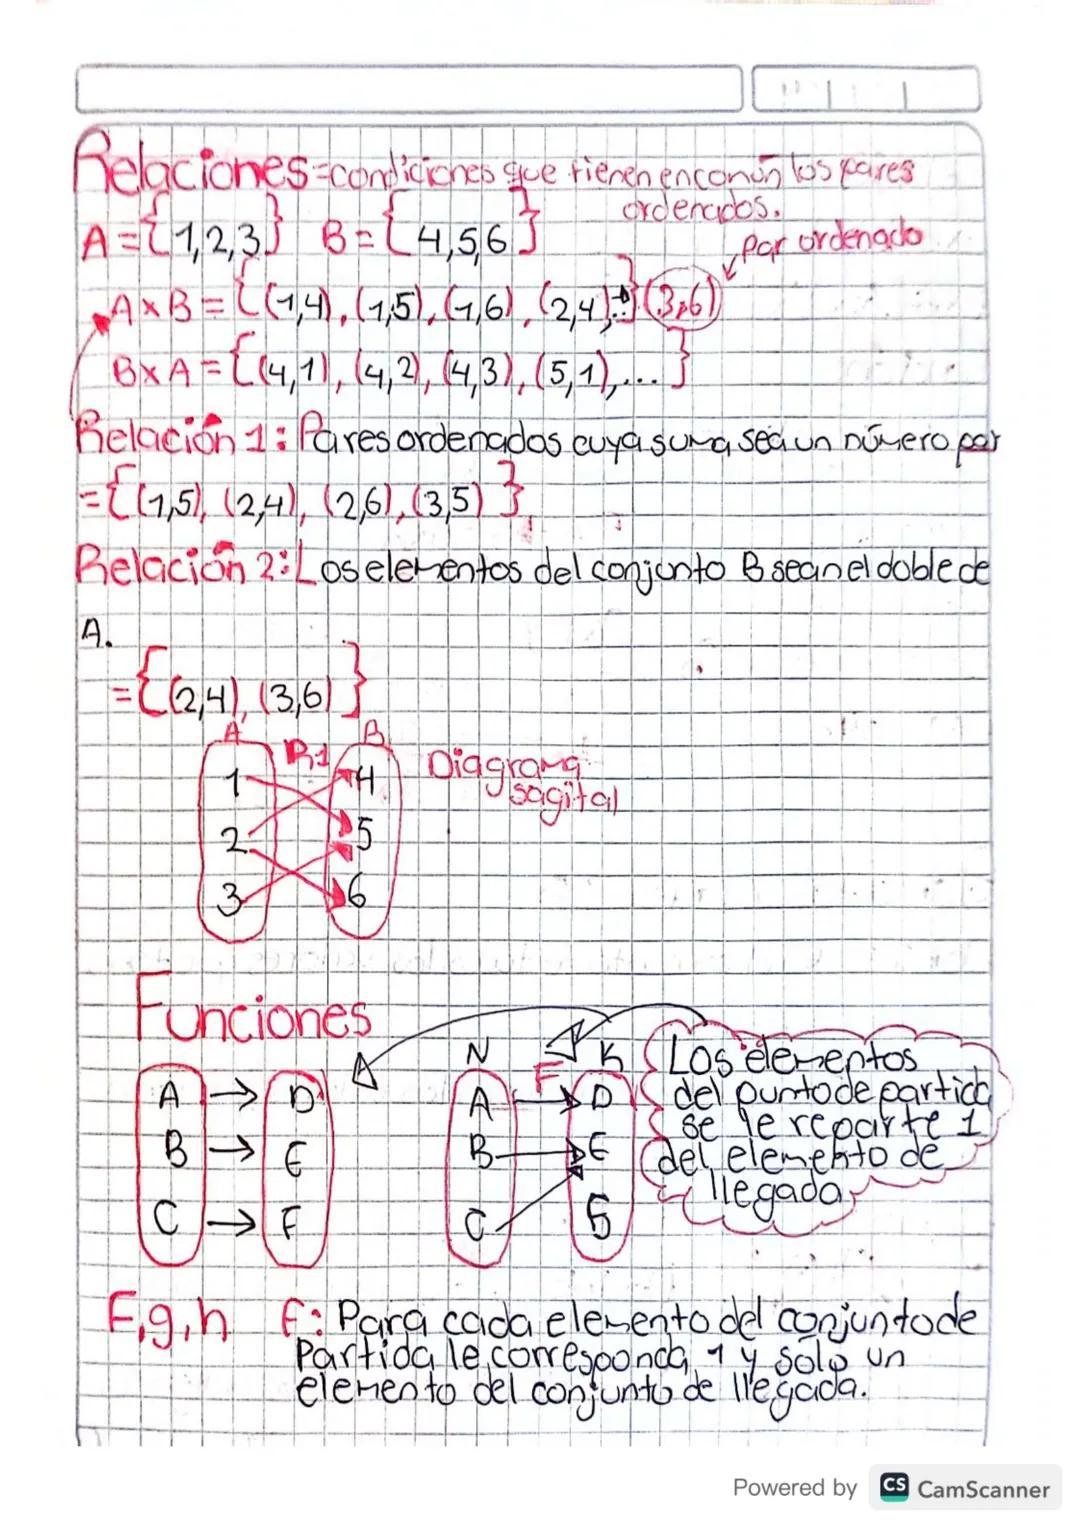 Relaciones=condiciones que tienen en común los pares
ordenados.
A={1,2,3} B={4,5,6}
Par ordenado
AxB={(1,4),(1,5),(1,6),(2,4),..}(3,6)
BxA={(4,1),(4,2),(4,3),(5,1),...}
Relación 1: Pares ordenados cuya suma sea un número par
={(1,5),(2,4),(2,6),(3,5)}
Relación 2: Los elementos del conjunto B sean el doble de
A.
={(2,4),(3,6)}
A R1 B
1 4
2 5
3 6
Diagrama
sagital
Funciones
A → D
B → E
C → F
N F K
A D
B E
C
Los elementos
del punto de partida
se le reparte 1
del elemento de
llegada
F,g,h f: Para cada elemento del conjunto de
Partida le corresponda 1 y sólo un
elemento del conjunto de llegada.
Powered by CS CamScanner